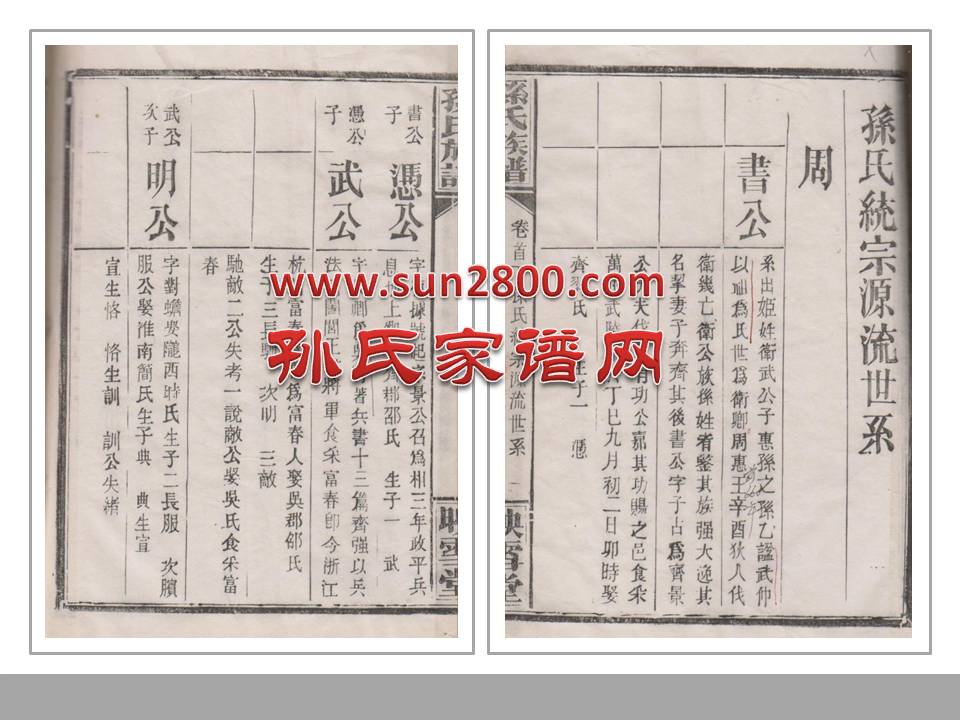 孫氏統宗源流世系
周
書公
系出姬姓衛武公子惠孫之孫乙謚武仲
以為氏世為衛卿周惠王辛酉狄人伐
衛幾亡衛公族孫姓者鑒其族强大逸其
名挈妻子奔齊其後書公字子占為齊景
公大夫伐有功公嘉其功賜之邑食采
丁巳九月初二日卯時娶
齊氏 生子一 憑
孫氏族譜
卷首
氏統宗源流世系
映雪堂
書公子
憑公
字 號起 景公召為相三年政平兵
息 上 郡邵氏 生子一 武
憑公子
武公
字 為吳 著兵書十三篇齊强以兵
法 闔閭王 將軍食采富春即今浙江
杭 富春 為富春人娶吳郡郤氏
生子三長馳 次明 三敵
馳敵二公失考一說敵公娶吳氏食采富
春
武公次子
明公
字對蟾娶隴西時氏生子二長服 次臏
服公娶淮南簡氏生子典 典生宣
宣生恪 恪生訓 訓公失緒
孫氏族譜
映雪堂
www.sun2800.com
孙氏家谱网